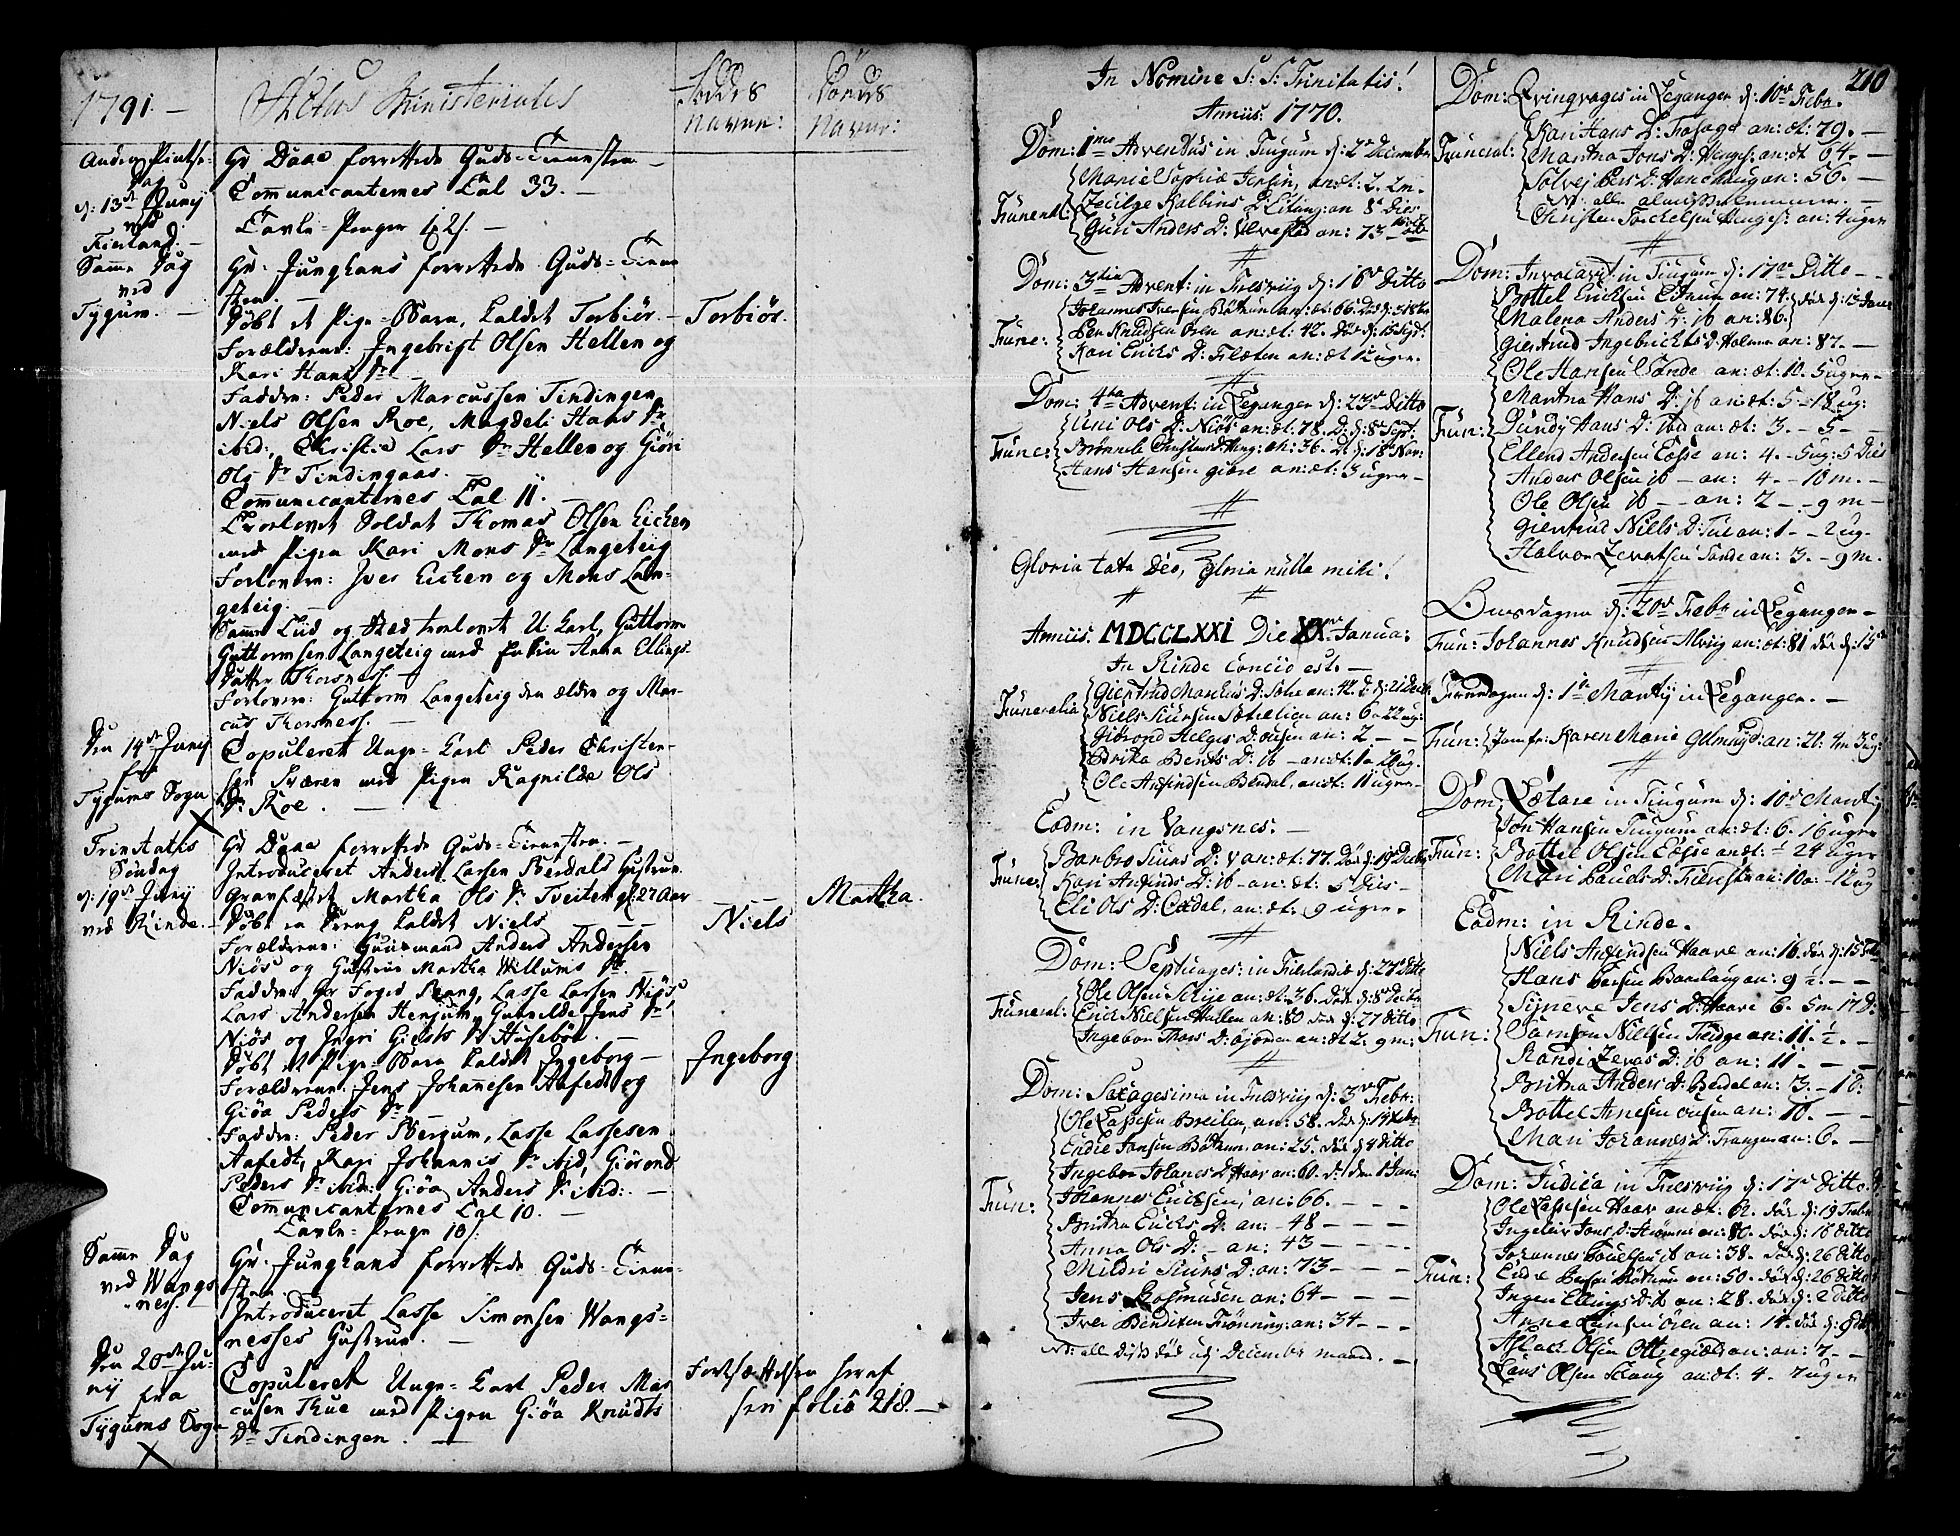 1791. —
Actus Ministeriales
Føddes Navne:
Dødes Navne:
Anden Pintse
Dag
d: 13de Junij
ved
Fierland. —
Hr Daae forrettede Guds-Tienesten —
Communicanternes Tal 33. —
Tavle-Penger 42 s. —
Samme Dag
ved
Tygum. —
Hr. Junghans forrettede Guds-Tiene
sten. —
Døbt et Pige-Barn, kaldet Torbiør. — Torbiør.
Forældrene: Ingebrigt Olsen Hellen og
Kari Hans Dr
Faddere: Peder Marcussen Tindingen
Niels Olsen Roe, Magdeli Hans Dr
ibid:, Christie Lars Dr Hellen og Giøri
Ols Dr Tindingaas. —
Communicanternes Tal 11. —
Trolovet Soldat Thomas Olsen Eichen
med Pigen Kari Mons Dr Langeteig
Forlovere: Iver Eichen og Mons Lan-
geteig. —
Samme Tiid og Stæd trolovet U: Karl, Guttorm
Guttormsen Langeteig med Anna Ellings-
Datter Thorsnes. —
Forlovere: Guttorm Langeteig den ældre og Mar-
cus Thorsness. —
Den 14de Junij
fra
Tygums Sogn
Copuleret Unge-Karl Peder Christen-
sen Sværen med Pigen Ragnilde Ols
Dr Roe. —
Trinitatis
Søndag
d: 19de Junij
ved Rinde. —
Hr Daae forrettede Guds-Tienesten. —
Introduceret Anders Larsen Berdals Hustrue.
Gravfæstet Martha Ols Dr Tveiten gl: 27 Aar — Martha.
Døbt en Dreng kaldet Niels — Niels
Forældrene: Huusmand Anders Andersen
Niøs og Hustrue Martha Willums Dr. —
Faddere: Hr Foged Leang, Lasse Larsen Niøs
Lars Andersen Henjum, Gunnilde Jens Dr
Niøs og Ingri Giests Dr Husebøe. —
Døbt et Pige-Barn kaldet Ingeborg — Ingeborg
Forældrene: Jens Johanesen Aafedt og
Giøa Peders Dr
Faddere: Peder Bergum, Lasse Lassesen
Aafedt, Kari Johannis Dr ibid, Giørond
Peders Dr ibid: Giøa Anders Dr ibid: —
Communicanternes Tal 10. —
Tavle-Penge 10 s.
Samme Dag
ved Wangs-
nes. —
Hr. Junghans forrettede Guds-Tiene-
sten.
Introduceret Lasse Simonsen Wangs-
nesses Hustrue. —
Den 20de Ju-
nij fra
Tygums Sogn
Copuleret Unge-Karl Peder Mar
cusen Thue med Pigen Giøa Knudts
Dr Tindingen. —
Fortsættelsen heraf
sees folio 218. —
In Nomine S: S: Trinitatis!
Anniis: 1770.
Dom: 1ma Adventus in Tiugum d: 2de December
Funeral:
Marie Sophie Jensen, an: æt: 2. 2 m.
Zecilge Kolbins D: Eitung: an 8te Dies
Guri Anders D: Ulvestad an: 73
Dom: 3tia Advent: in Tresviig d: 16de Ditto
Fune:
Johannes Iversen Bøthun an: æt: 66.
Peer Knudsen Øren an: æt: 42.
Kari Erichs D: Flæten an: æt 12 uger.
Dom: 4ta Advent: in Leganger d: 23de Ditto
Fune:
Uni Ols D: Niøs an: æt: 78. D: d: 8de Sept:
Brønnele Christens D: Heng: æt: 36. D: d: 18 Nov:
Hans Hansen giære an: æt: 3 uger —
Gloria tota Deo, Gloria nulla mihi!
Anniis. MDCCLXXI Die XX Janua:
In Rinde Concio est. —
Funeralia
Giertrud Markus D: Sotre an: 42.
Niels Siursen Sætrelien an: 6. 22 ug:
Giørond Helges D: Ousen an: 2 — —
Edrika Bents D: ib — an: æt: 1. 2 ug.
Ole Anfindsen Berdal, an: æt: 11 uger —
Eodm: in Vangsnes. —
Fune:
Barbro Siurs D: V an: æt: 77.
Kari Anfinds D: ib — an: æt: 5 Dies —
Eli Ols D: Tædal, an: æt: 9 uger.
Dom: Septuages: in Fierlandie d: 27de Ditto
Funeral:
Ole Olsen Skije an: æt: 36.
Erich Nielsen Hatlen an: 80 død d: 27 ditto
Ingebor Thors D: Øjøren an: æt 2. 9 m:
Dom: Sexagesima in Tresviig d: 3de Febr:
Fun:
Ole Lassesen Breilen, an: 58.
Endre Jansen Bøthun. an: 25. død d: 4 ditto
Ingebor Johanes D: Haar an: 60.
Johannes Erichsen, an: 66. — — —
Britha Erichs D: an: — 48 — — —
Anna Ols D: — an: 43 — — —
Mildri Siurs D: an: 73 — — —
Jens Rosmusen an: 64 — — —
Iver Benditen Frønning: an: 34 — — —
NB: alle disse død udj December maaned. —
210
Dom: Qvinqvages in Leganger d: 10de Febr.
Funeral:
Kari Hans D: Frosage an: æt: 79. —
Martha Jons D: Henges: an: æt 64. —
Solvej Pers D: Hanehaug an: 56. —
NB. alle almisse lemmer. —
Christen Torckelsen Henges: an: 4 uger
Dom: Invocavit in Tiugum d: 17de Ditto —
Fun:
Bottel Ericksen Eitrum an: 74.
Malena Anders D: ib an: 86.
Giertrud Ingebrichts D: Holmen an: 87. —
Ole Hansen Sande an: æt: 10. 5 uger —
Martha Hans D: ib an: æt: 5 — 18 ug:
Sundy Hans D: Ibid an: æt: 3. — 5 —
Ellend Andersen Eøsse an: 4. — 5 ug: 5 Dies
Anders Olsen ib — an: 4 — 10 m. —
Ole Olsen ib — — an: 2 — 9 m —
Giertrud Niels D: Tue an: 1 — — 2 ug.
Halvor Zevertsen Sande an: 3. — 9 m.
Onsdagen d: 20de Febr in Leganger —
Fun: Johannes Knudsen Alvrig an: æt: 81 død d: 15de
Torsdagen d: 1ste Martij in Leganger. —
Fun: Jomfr: Karen Marie an: 21. 4 m 3 ug:
Dom: Lætare in Tiugum d: 10de Martij
Fun:
Jon Hansen Tiugum an: æt: 6. 16 uger
Bottel Olsen Eøsse an: æt: ½ 24 uger
Mari Pouls D: an: 10. — 12 ug
Eodm: in Rinde.
Fun:
Niels Anfindsen Haave an: 16. død d: 15
Hans Persen Boarlaug an: 9 ½. — —
Synneve Jens D: Haave 6. 5 m 17 D:
Samson Nielsen Feidge an: 11. ½. — —
Randi Zevas D: ib an: 11 — — —
Britha Anders D: Berdal an: 3. — 10.
Bottel Arnesen Ousen an: 10. — —
Mari Johannes D: Trangen an: 6. —
Dom: Judica in Tresviig d: 17de Ditto.
Fun:
Ole Lassesen Haar an: æt: 62. død d: 19 Febr
Ingeleiv Jons D: an: 80. død d: 16 ditto
Johannes Poulsen ib an: 38. død d: 26 ditto
Endre Persen Bøthun an: 50. død d: 26 ditto
Ingen Ellings D: ib an: 28. død d: 2 ditto
Anne Øien an: 14. død d: 9 ditto
Aslack Olsen Ottregiæle an: an: 7. — —
Lars Olsen Skaug an: æt: 4. 7 uger —